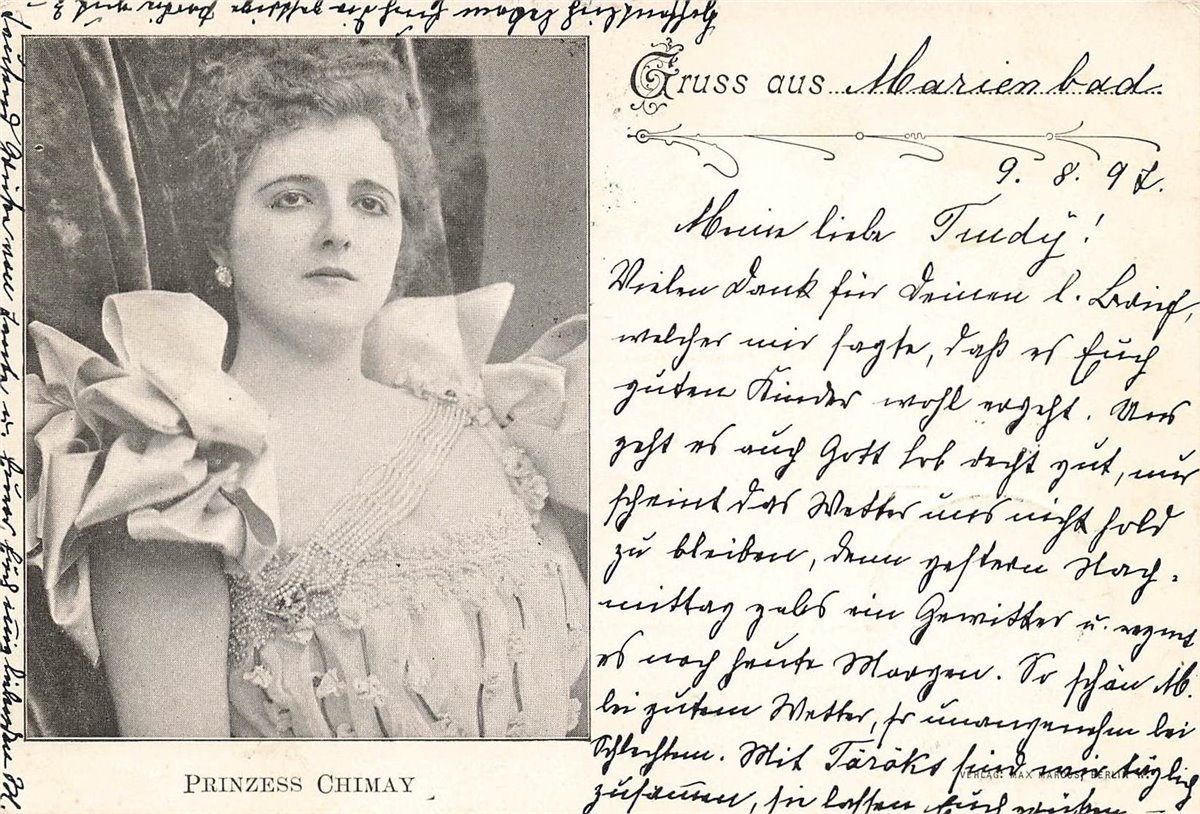 Gruss aus Marienbad
9. 8. 97.
Meine liebe Trudy!
Vielen Dank für Deinen l. Brief,
welcher mir sagte, daß es Euch
guten Kinder wohl ergeht. Uns
geht es auch Gott lob recht gut, nur
scheint das Wetter uns nicht hold
zu bleiben, denn gestern Nach-
mittag gabs ein Gewitter u. regnet
es noch heute Morgen. So schön M.
bei gutem Wetter, so unangenehm bei
Schlechtem. Mit Töröks sind wir täglich
zusammen, sie lassen Euch grüßen
VERLAG: MAX MARCUS, BERLIN
PRINZESS CHIMAY